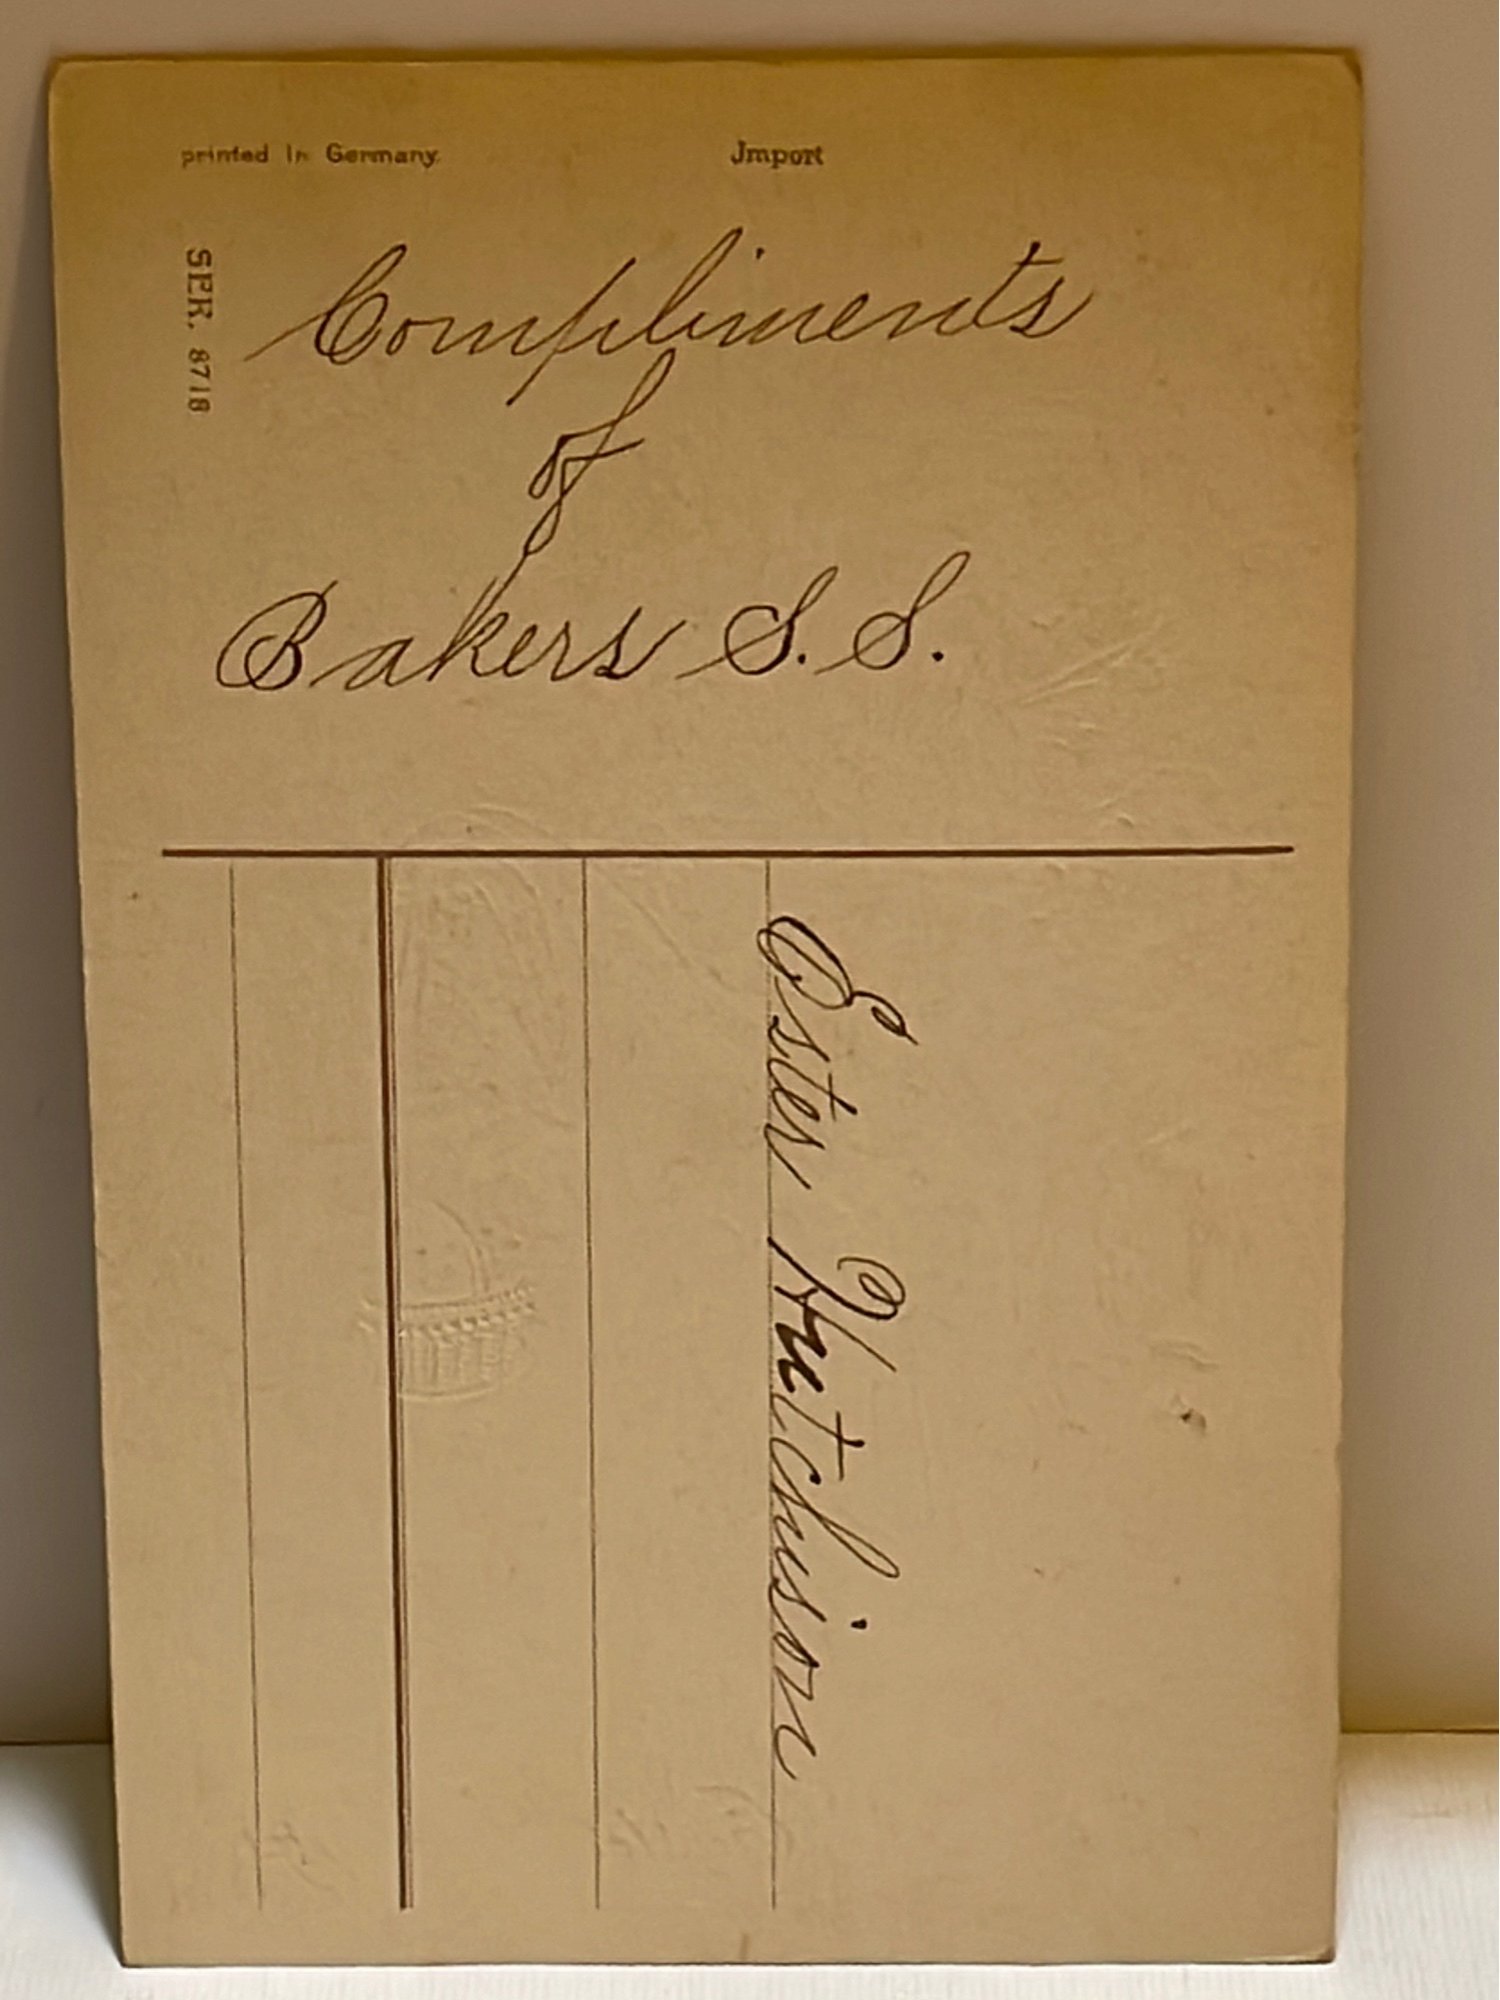 printed in Germany.
Jmport
SER. 8718
Compliments
of
Bakers S. S.
Ester Hutchison